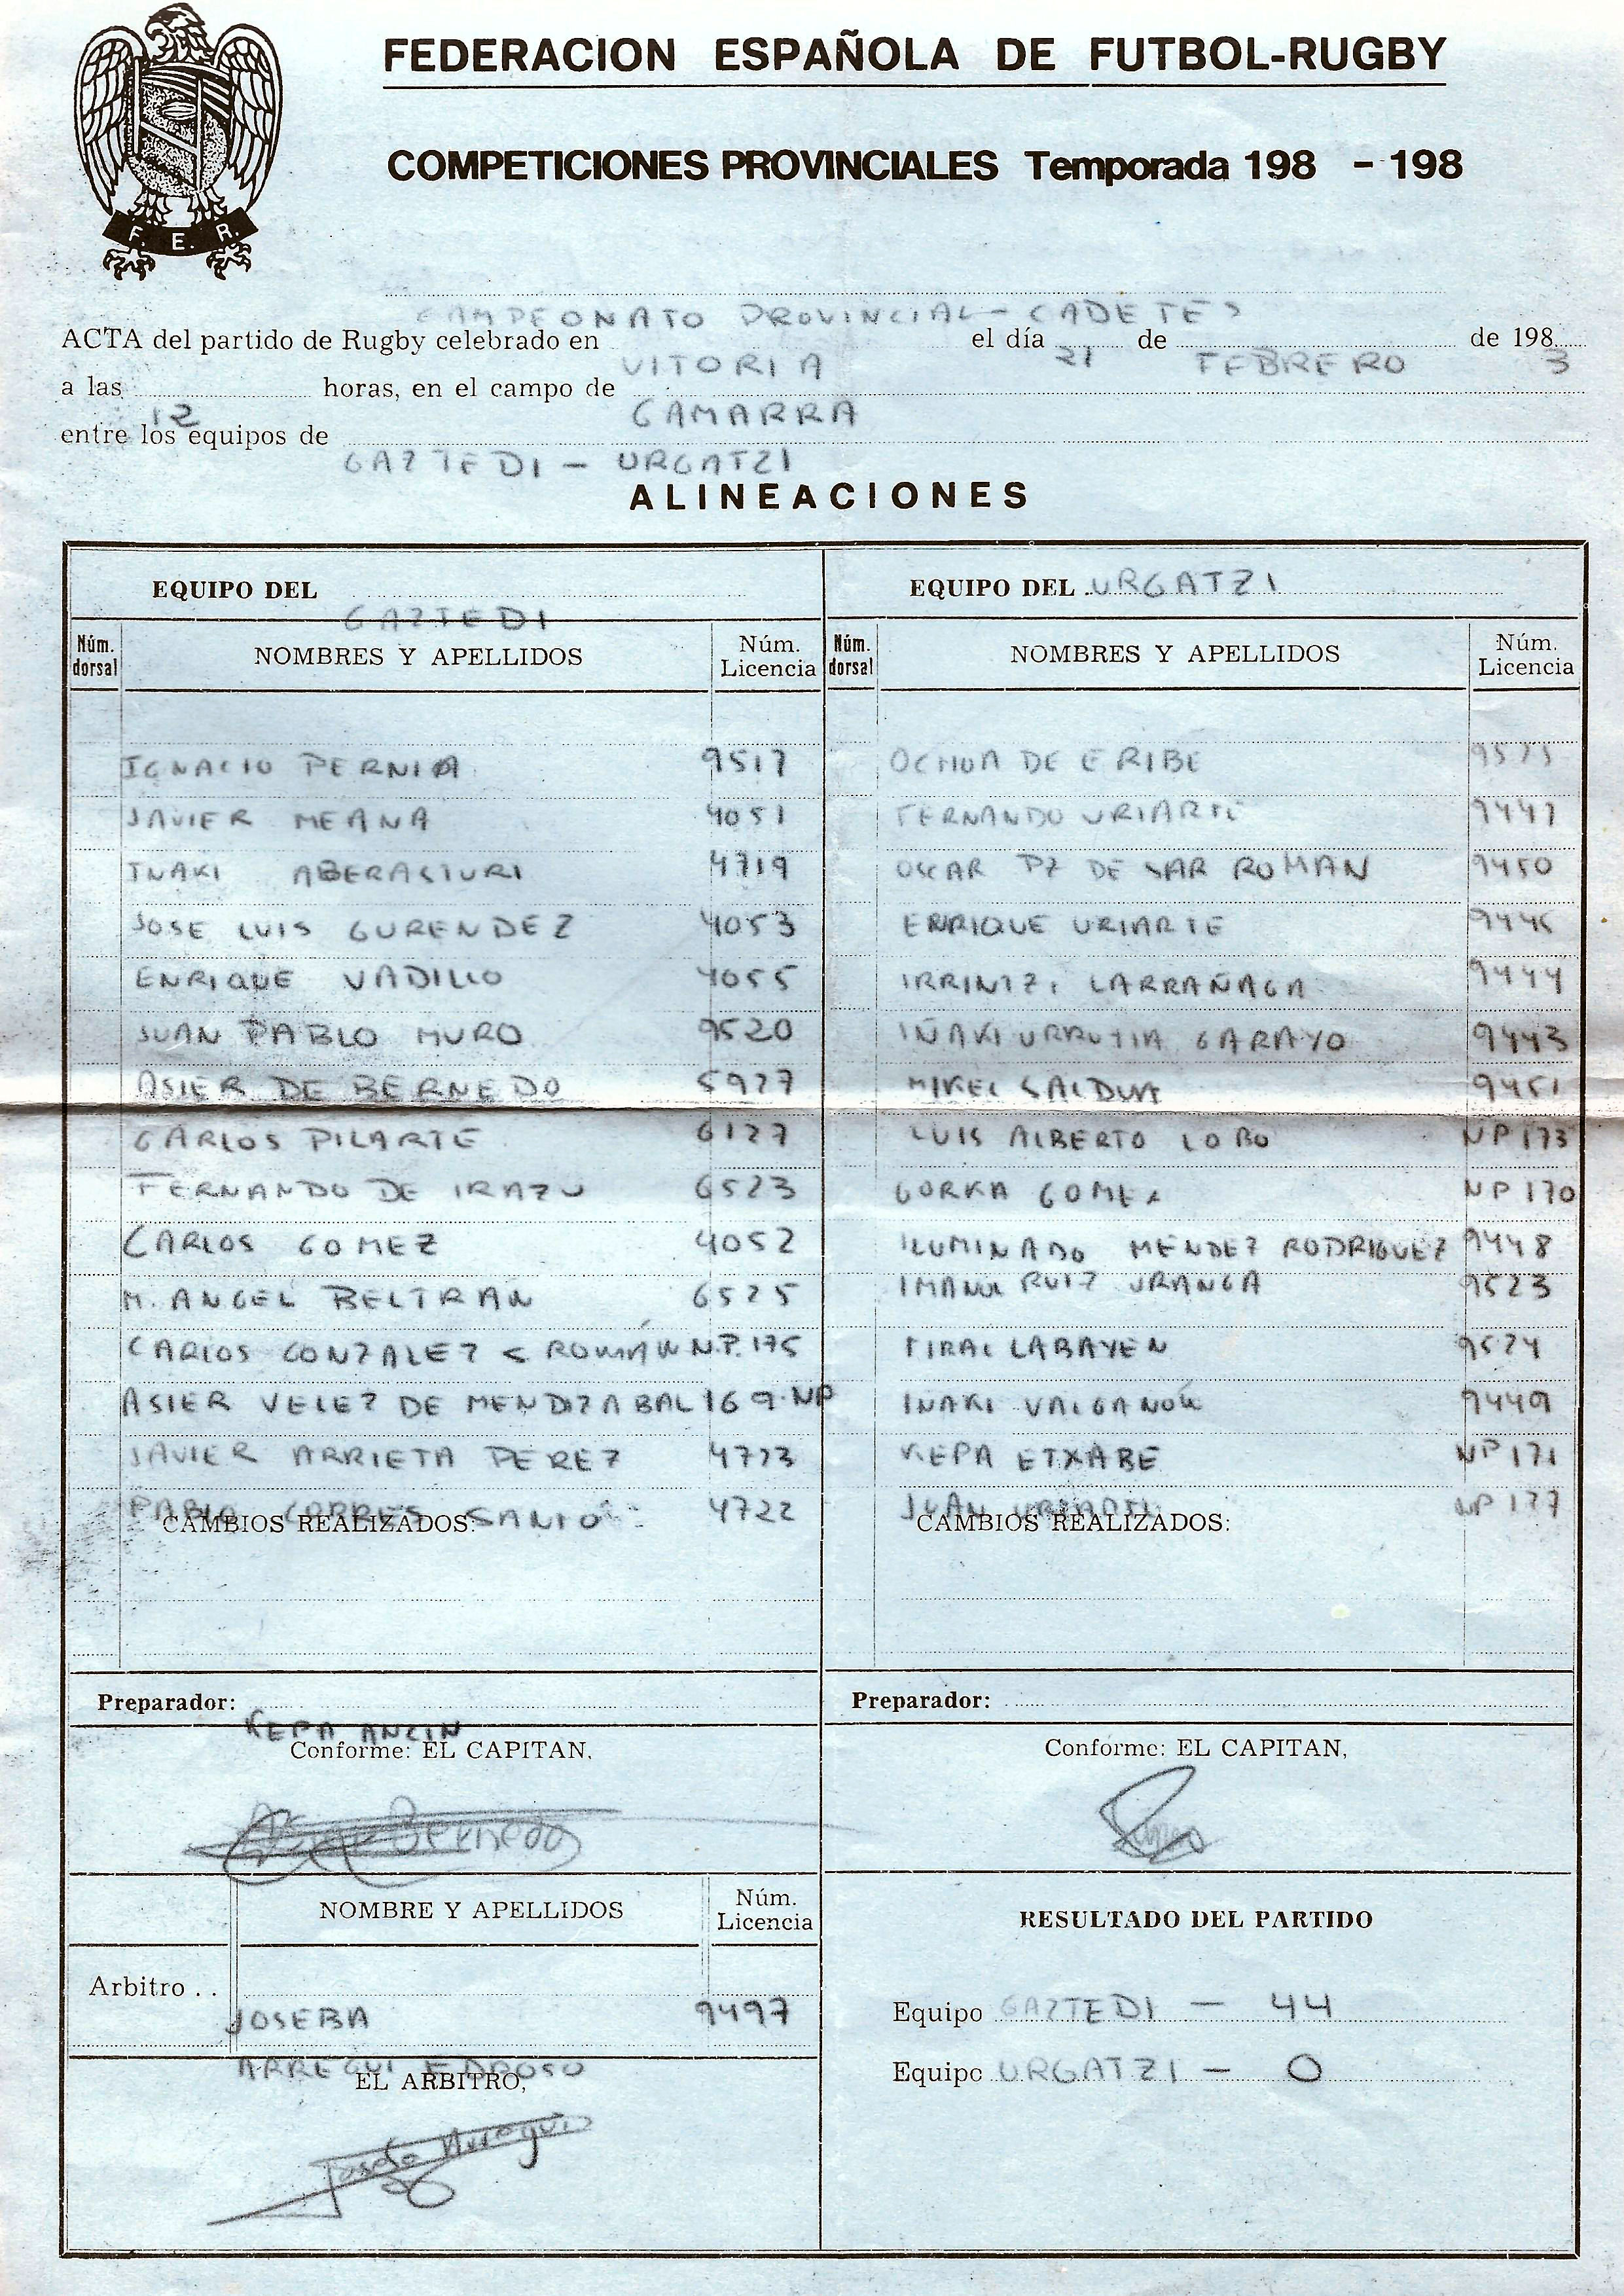 FEDERACION ESPAÑOLA DE FUTBOL-RUGBY
COMPETICIONES PROVINCIALES Temporada 198 - 198
F. E. R.
CAMPEONATO PROVINCIAL - CADETES
ACTA del partido de Rugby celebrado en VITORIA el día 21 de FEBRERO de 1983
a las 12 horas, en el campo de GAMARRA
entre los equipos de GAZTEDI - URGATZI
ALINEACIONES
EQUIPO DEL GAZTEDI EQUIPO DEL URGATZI
Núm. dorsal NOMBRES Y APELLIDOS Núm. Licencia Núm. dorsal NOMBRES Y APELLIDOS Núm. Licencia
IGNACIO PERNIA 9517 OCHOA DE ERIBE
JAVIER MEANA 4051 FERNANDO URIARTE 9447
IÑAKI ABERASTURI 4719 OSCAR PZ DE SAR ROMAN 9450
JOSE LUIS GURENDEZ 4053 ENRIQUE URIARTE
ENRIQUE VADILLO 4055 IRRINTZI LARRAÑAGA 9444
JUAN PABLO MURO 9520 IÑAKI URRUTIA GARAYO 9443
ASIER DE BERNEDO 5927 MIKEL SALDUA 9451
CARLOS PILARTE 6127 LUIS ALBERTO LOBO NP 173
FERNANDO DE IRAZU 6523 GORKA GOMEZ NP 170
CARLOS GOMEZ 4052 ILUMINADO MENDEZ RODRIGUEZ 9448
M. ANGEL BELTRAN 6525 IMANOL RUIZ URANGA 9523
CARLOS GONZALEZ S ROMÁN N.P. 175 LABAYEN 9524
ASIER VELEZ DE MENDIZABAL 169 NP IÑAKI VALGAÑON 9449
JAVIER ARRIETA PEREZ 4723 KEPA ETXABE NP 171
PABLO SANTO 4722 JUAN URIARTE NP 177
CAMBIOS REALIZADOS: CAMBIOS REALIZADOS:
Preparador: KEPA ANCIN Preparador:
Conforme: EL CAPITAN, Conforme: EL CAPITAN,
Bernedo
NOMBRE Y APELLIDOS Núm. Licencia RESULTADO DEL PARTIDO
Arbitro . . JOSEBA 9497 Equipo GAZTEDI - 44
ARREGUI Equipo URGATZI - 0
EL ARBITRO,
Joseba Arregui